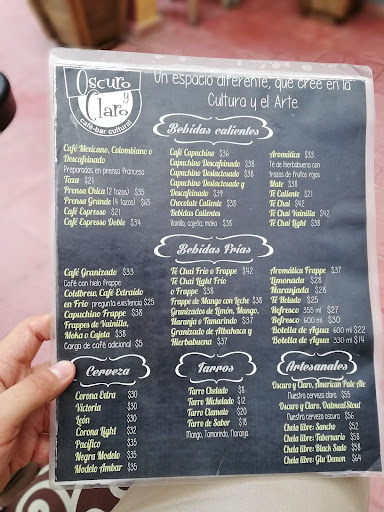 Oscuro
y
Claro
café-bar cultural
Un espacio diferente, que cree en la
Cultura y el Arte
Bebidas calientes
Café Mexicano, Colombiano o
Descafeinado
Preparados en prensa francesa
Taza $21
Prensa Chica (2 tazas) $35
Prensa Grande (4 tazas) $65
Café Espresso $21
Café Espresso Doble $34
Café Capuchino $36
Capuchino Descafeinado $38
Capuchino Deslactosado $38
Capuchino Deslactosado y
Descafeinado $39
Chocolate Caliente $38
Bebidas Calientes
Vainilla, cajeta, moka $38
Aromática $33
Té de hierbabuena con
trozos de frutos rojos
Mate $38
Té Caliente $21
Té Chai $42
Té Chai Vainilla $42
Té Chai Light $38
Bebidas Frías
Café Granizado $33
Café con hielo frappé
Coldbrew, Café Extraído
en Frío pregunta existencia $25
Capuchino Frappe $38
Frappes de Vainilla,
Moka o Cajeta $38
Cargo de café adicional $5
Té Chai Frío o Frappe $42
Té Chai Light Frío
o Frappe $38
Frappe de Mango con Leche $38
Granizados de Limón, Mango,
Naranja o Tamarindo $37
Granizado de Albahaca y
Hierbabuena $37
Aromática Frappe $37
Limonada $28
Naranjada $28
Té Helado $25
Refresco 355 ml $27
Refresco 600 ml $30
Botella de Agua 600 ml $22
Botella de Agua 330 ml $14
Cerveza
Corona Extra $30
Victoria $30
León $30
Corona Light $32
Pacífico $35
Negra Modelo $35
Modelo Ambar $35
Tarros
Tarro Chelado $8
Tarro Michelado $12
Tarro Clamato $20
Tarro de Sabor $18
Mango, Tamarindo, Naranja
Artesanales
Oscuro y Claro, American Pale Ale
Nuestra cerveza clara $55
Oscuro y Claro, Oatmeal Stout
Nuestra cerveza oscura $56
Chela libre: Sancho $52
Chela libre: Tabernario $58
Chela libre: Black Sado $58
Chela libre: Giu Demon $64